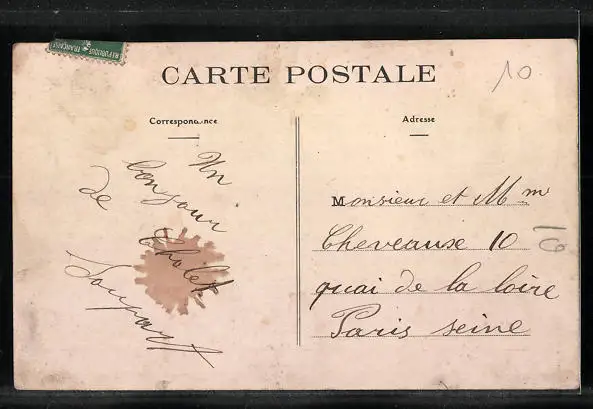 REPUBLIQUE FRANCAISE
CARTE POSTALE
10
Correspondance
Adresse
Un
bonjour
de Cholet
Monsieur et Mme
Cheveause 10
10
quai de la loire
Paris seine